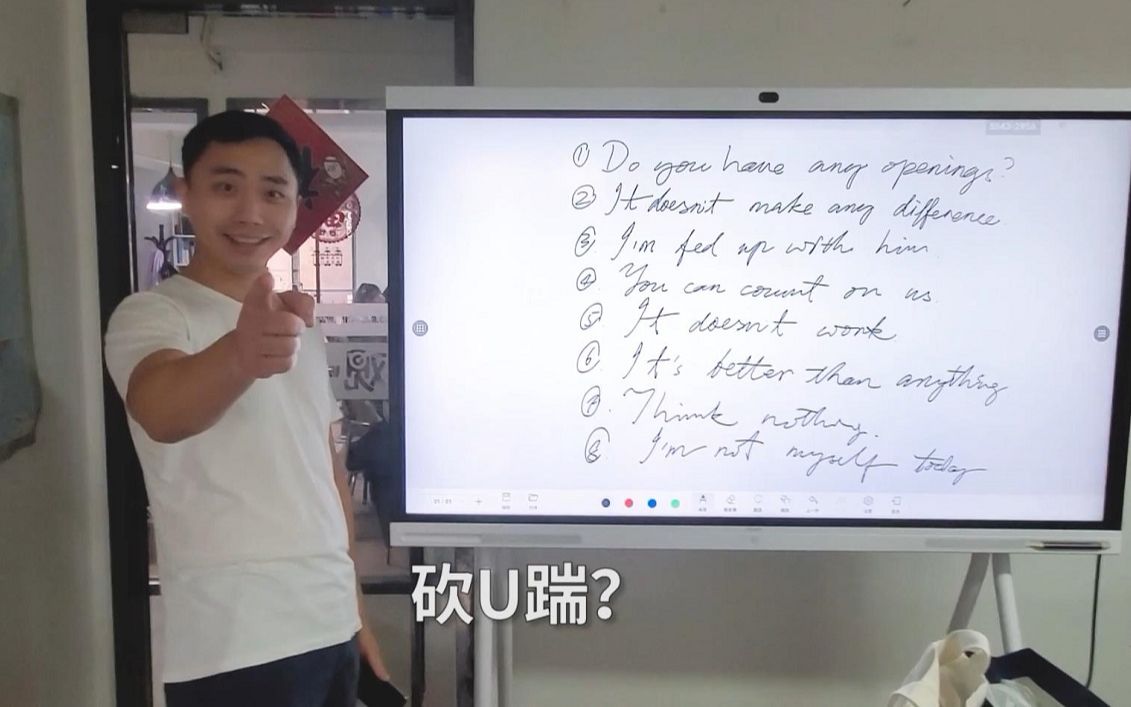 ① Do you have any openings?
② It doesn't make any difference
③ I'm fed up with him
④ You can count on us.
⑤ It doesn't work
⑥ It's better than anything
⑦ Think nothing.
⑧ I'm not myself today
砍U踹？